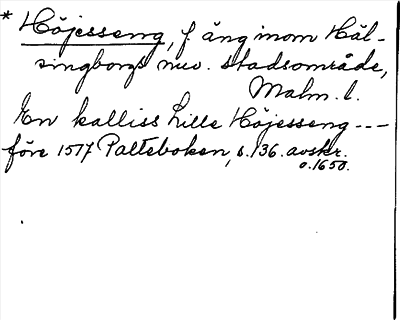 * Höjesseng, f äng inom Häl-
singborgs nuv. stadsområde,
Malm. l.
En kalliss Lille Höjesseng ---
före 1517 Palteboken, s. 136. avskr.
o. 1650.